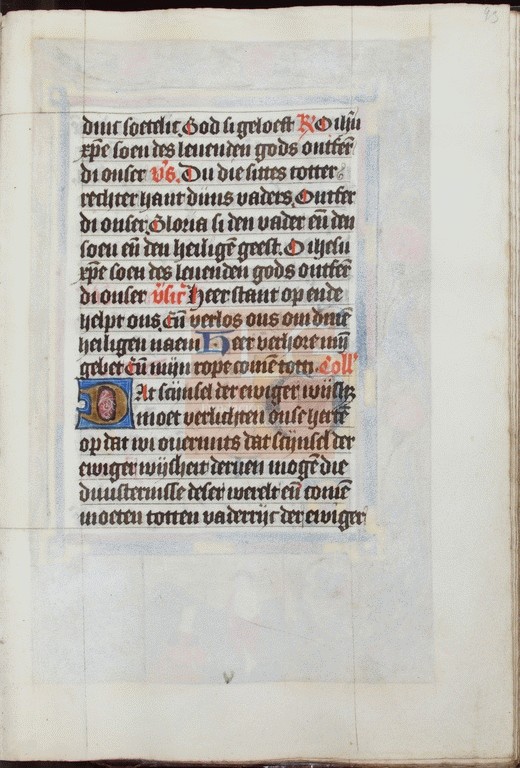 93
diuit soetelic. God si geloeft R O ihū
xp̄e soen des leuenden gods ontfer̄
di onser v̄s. Du die sittes totter
rechter hant dijns vaders, Ontfer
di onser Gloria si den vader en̄ den
soen en̄ den heilighē geest. O ihesu
xp̄e soen des leuenden gods ontfer̄
di onser v̄sic̄ Heer stant op ende
helpt ons En̄ verlos ons om dinē
heiligen naem Heer verhore mijn
gebet En̄ mijn rope comē tot ti. Coll'
Dat scijnsel der ewiger wijsh;
moet verlichten onse hertē
op dat wi ouermits dat scijnsel der
ewiger wijsheit deruen mogē die
duusternisse deser werelt en̄ comē
moeten totten vaderrijc der ewiger